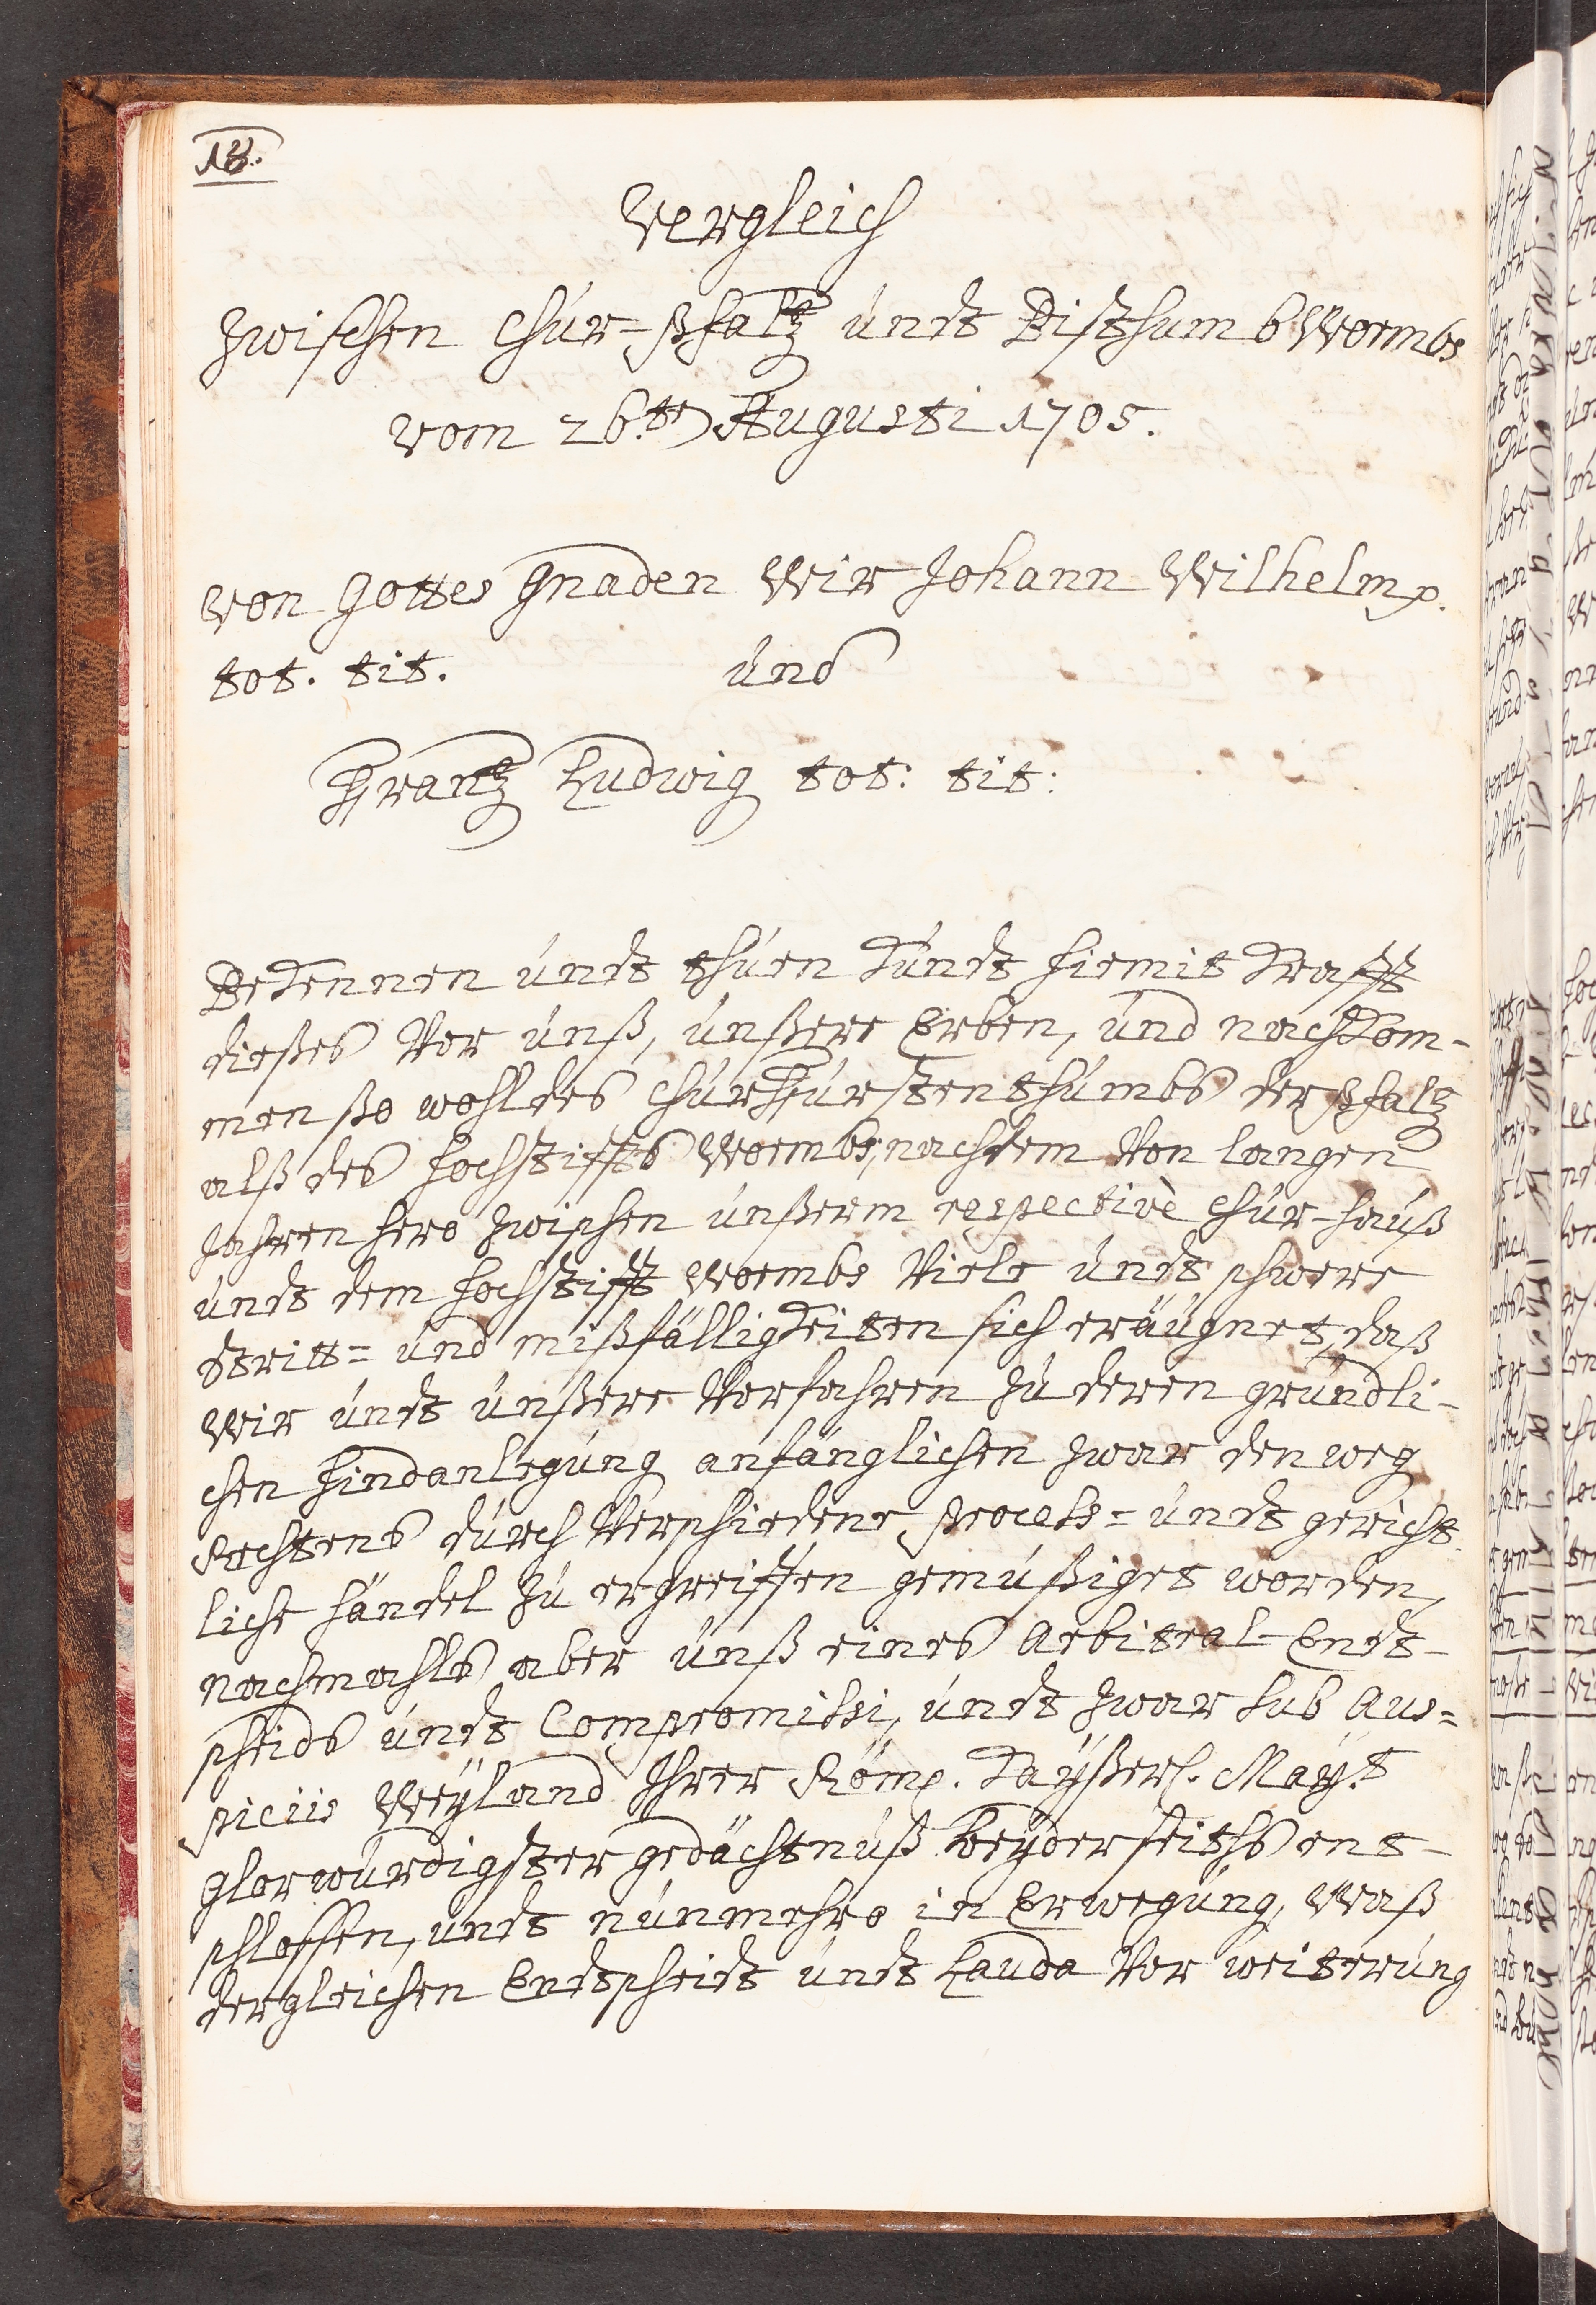 Vergleich
Zwischen Chur-Pfaltz undt Bisthumb Wormbs
vom 26.ten Augusti 1705.
Von Gottes Gnaden Wir Johann Wilhelm p.
tot. tit. und
Frantz Ludwig tot: tit:
Bekennen undt thuen Kundt hiemit Krafft
dießes Vor unß, unßere Erben, und nachkom-
men ßo wohl des ChurFürstenthumbs der Pfaltz
alß des Hochstiffts Wormbs, nachdem Von langen
Jahren hero zwischen unßerm respectivè Chur-Hauß
undt dem Hochstifft Wormbs Viele undt schwere
stritt= und mißfälligkeiten sich eräugnet, daß
Wir undt unßere Vorfahren zu deren gründli-
chen Hindanlegung anfänglichen zwar den weg
Rechtens durch Verschiedene Process= undt gericht-
liche händel zu ergreiffen gemüßiget worden,
nachmahls aber unß eines Arbitral-Endt-
scheids undt Compromissi, undt zwar sub Aus=
piciis Weyland Ihrer Römp. Kayßerl. Mayt.
Glorwürdigster gedächtnuß beyderseiths ent-
schlossen, undt nunmehro in Erwegung, Waß
dergleichen Endtscheidt undt Lauda Vor weiterung